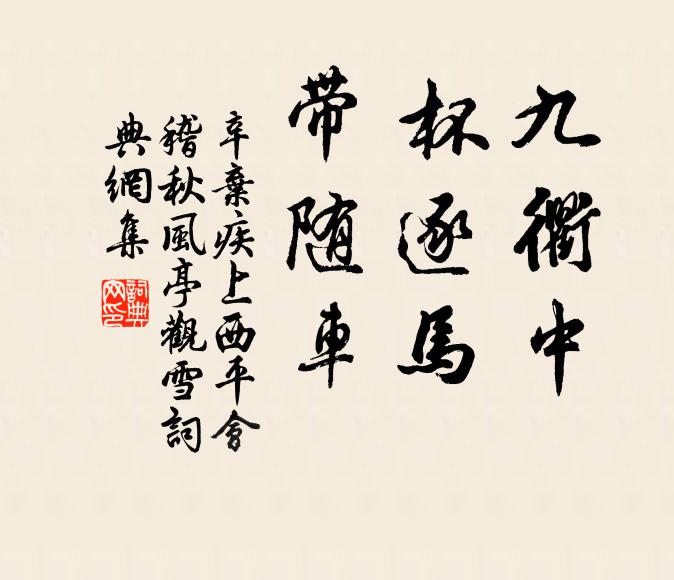 九衢中
杯逐馬
帶随車
辛棄疾上西平會
稽秋風亭觀雪詞
典網集
詞典
网印